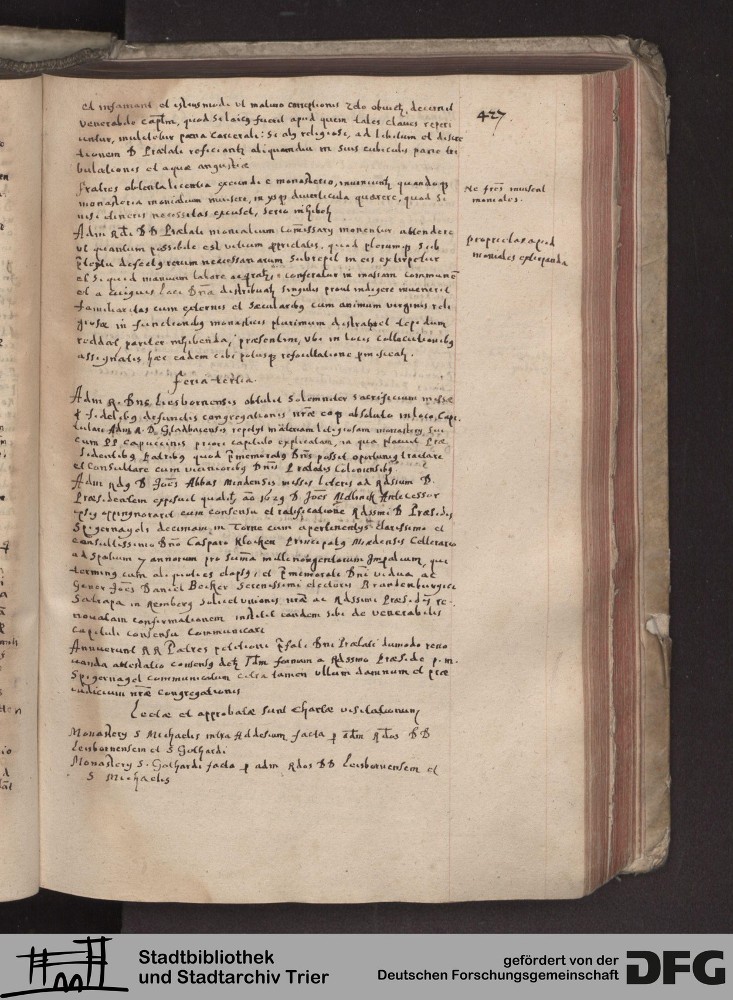 427.
et infamant et istiusmodi ut maturo conceptionis 2do obviet, decernit
venerabile captlm, quod si laicus fuerit apud quem tales claves reperi
untur, mulctetur poena carcerali: si aly religiosi, ad libitum et discre
tionem D Praelati reficiantr aliquamdiu in suis cubiculis pane tri
bulationis et aquae angustiae
Fratres obtenta licentia exeundi e monasterio, inveniuntr quandoqz
monasteria monialium invisere, in ysqz diverticula quaerere, quod si
nisi itineris necessitas excuset, serio inhibetr
Ne frēs invisant
moniales.
Adm Rdi DD Praelati monialium Comissary monentur attendere
ut quantum possibile est vitium proprietatis, quod plerumqz sub
ptextu defectus rerum necessariarum subrepit in eis extirpetur
proprietas apud
moniales extirpanda
et si quid manuum labore acquiratr, conferatur in massam communē
et a loci Dna distribuatr singulis prout indigere invenerit
familiaritas cum externis et saecularibus cum animum virginis reli
giosae in functionibus monasticis plurimum distrahat et tepidum
reddat, pariter inhibenda, praesertim, ubi in locis collocutionibus
assignatis haec eadem cibi potusqz refocillatione pmiscetr.
feria tertia.
Adm R. Dns Liesbornensis obtulit solemniter sacrificium missae
p fidelibus defunctis congregationis nrae eoqz absoluto in loco Capi
tulari Adm R. D. Gladbacensis repetyt materiam litigiosam monastery sui
cum PP Capuccinis priori capitulo explicatam, in qua placuit Prae
sidentibus Patribus quod pmemoratus Dns possit oportunius tractare
et consultare cum vicinioribus Dnis Praelatis Coloniensibus
Adm Rdus D Joēs Abbas Mindensis missis literis ad Rdssimum D.
Praesidentem exposuit qualitr aō 1629 D. Joēs Antecessor
ipsius oppignorarit cum consensu et ratificatione Rdssmi D Praesidis
Spigernagels decimam in Torne cum apertinentys clarissimo et
consultissimo Dno Casparo Klocken Principatus Mindensis Cellerario
ad spatium 7 annorum pro suma mille nongentorum Imperialium, qui
terminus cum aliquoties elapsus, et pmemorati Dni vidua ac
Gener Joēs Daniel Becker Serenissimi electoris Brandenburgici
Satrapa in Remberg solicet unionis nrae ac Rdssimi Praesidis re-
novatam confirmationem institit eandem sibi de venerabilis
capituli consensu communicari
Annuerunt RR Patres petitioni pfati Dni Praelati dummodo reno
uanda attestatio consensus detr Ad formam a Rdssmo Praeside p. m.
Spigernagel communicatam citra tamen ullum damnum et prae
iudicium nrae congregationis
Lectae et approbatae sunt Chartae visitationum
Monastery S Michaelis intra Hildesium facta p adm Rdos DD
Leisbornensem et S Gothardi
Monastery S. Gothardi facta p adm Rdos DD Leisbornensem et
S Michaelis
Stadtbibliothek
und Stadtarchiv Trier
gefördert von der
Deutschen Forschungsgemeinschaft
DFG